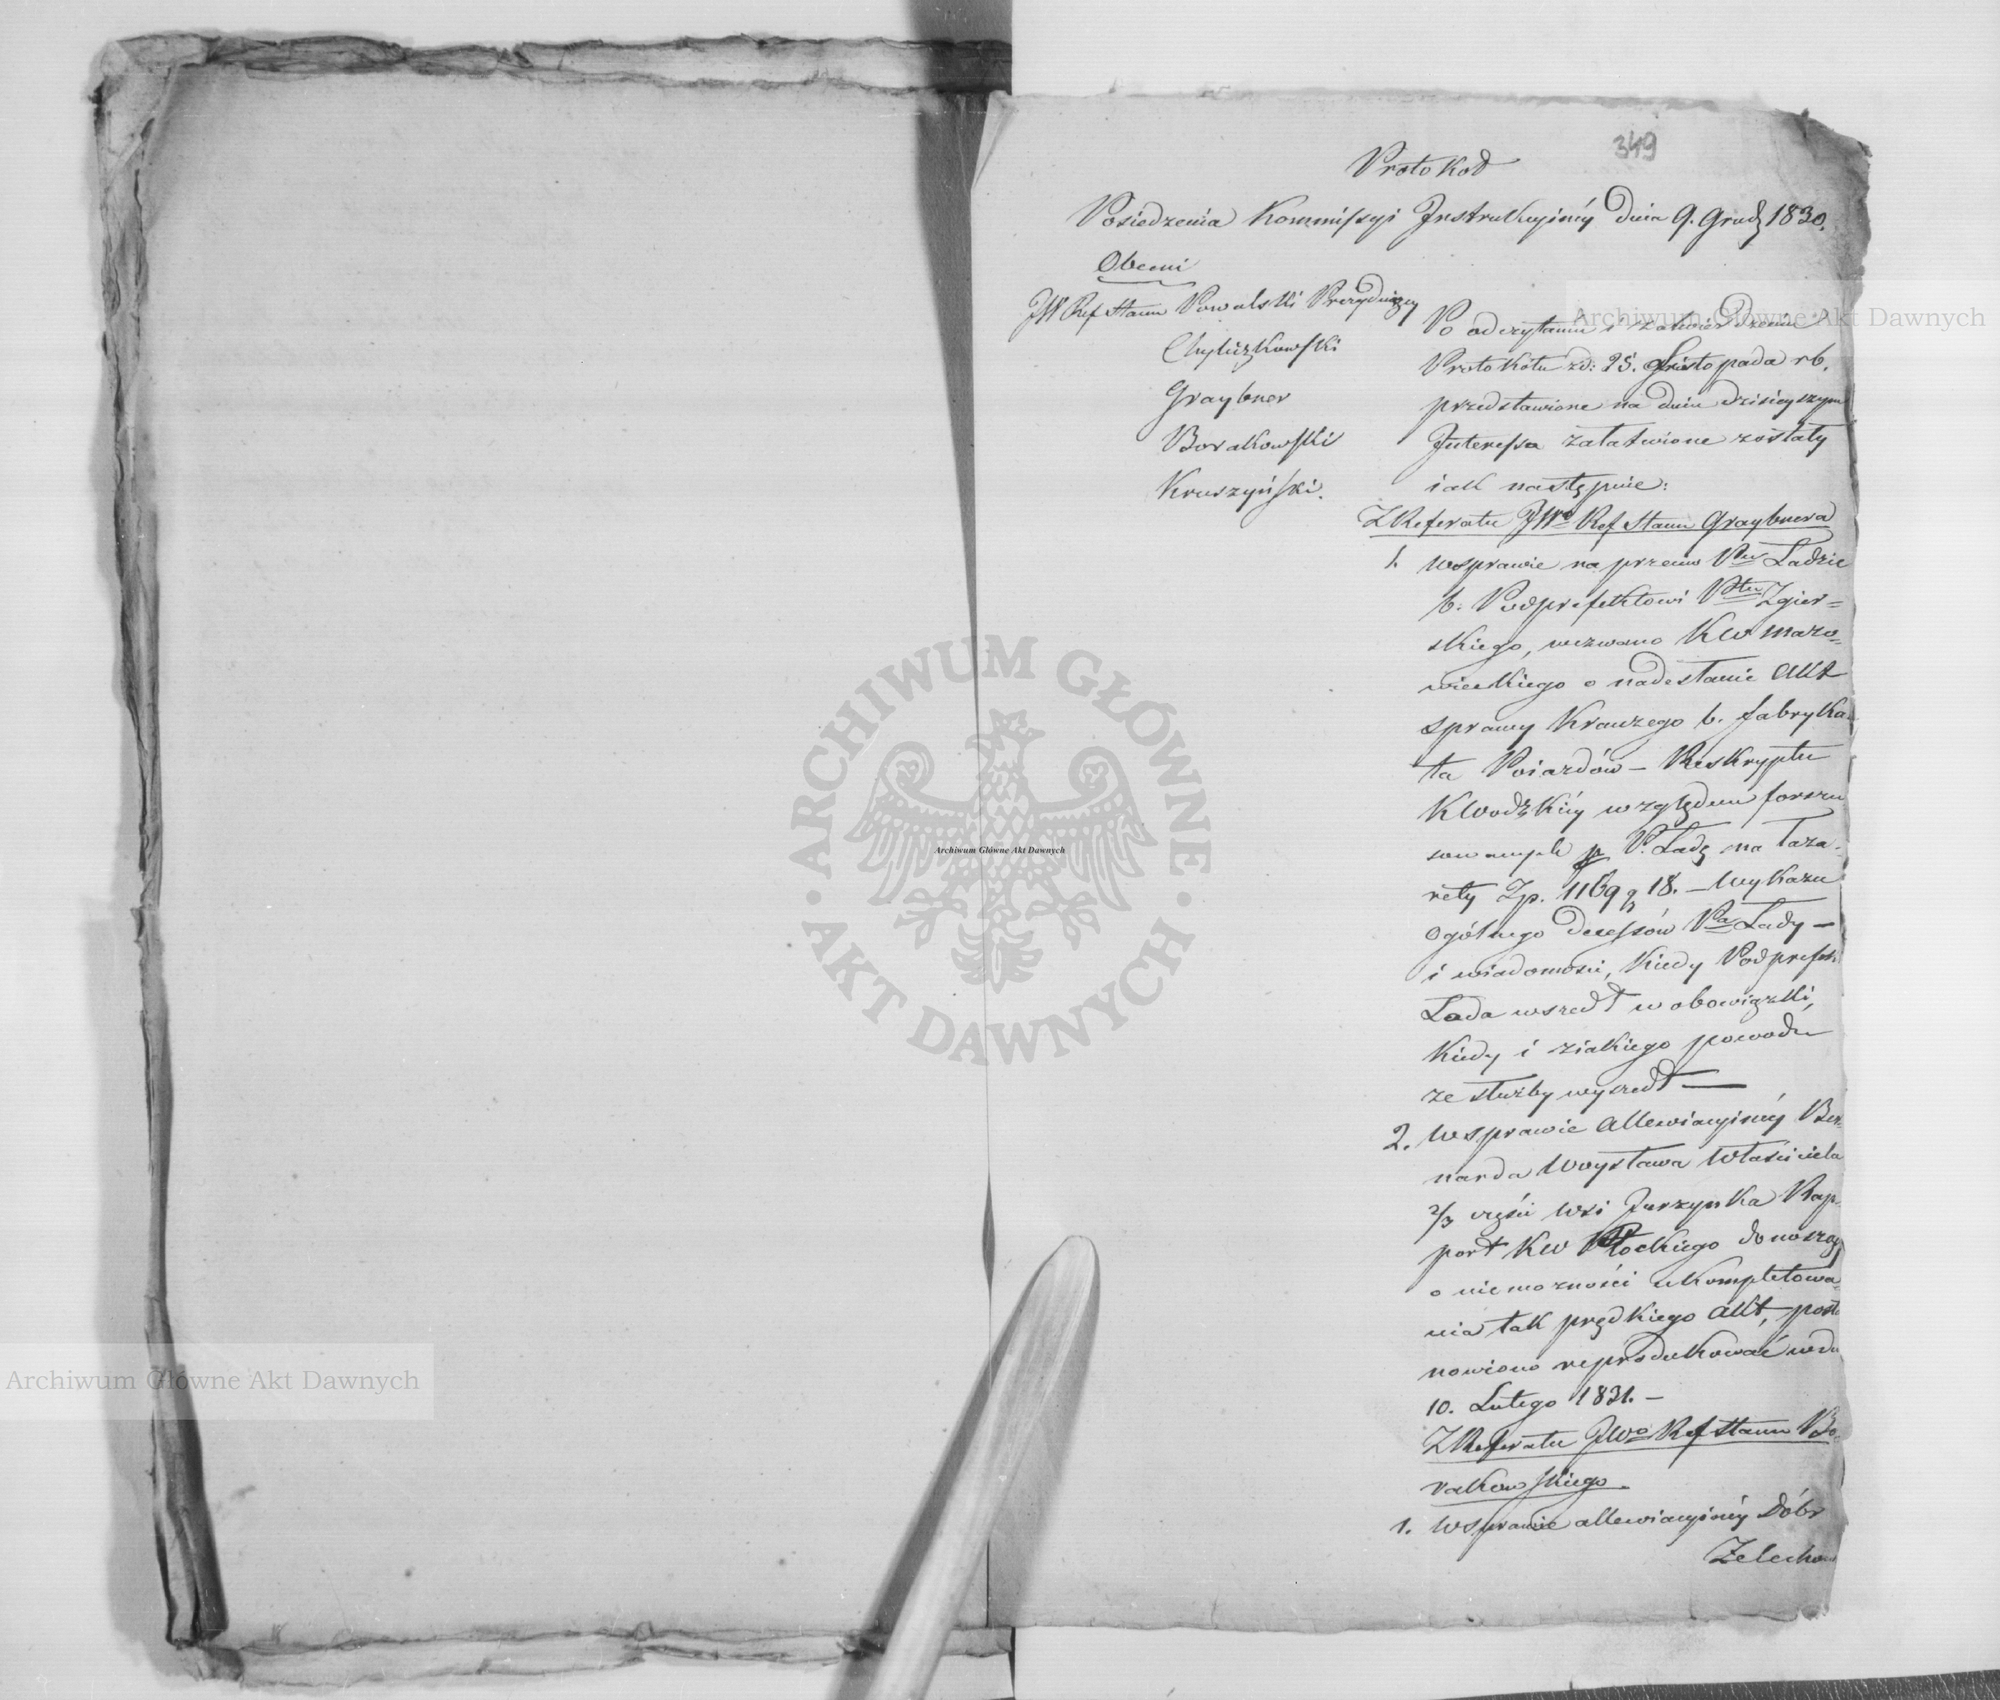 349
Protokoł
Posiedzenia Kommissyi Instrukcyinéy dnia 9. Grud 1830.
Obecni
JW Ref Stanu Powalski Prezyduiący
Chyliczkowski
Graybner
Borakowski
Kruszyński.
Po odczytaniu i zatwierdzeniu
Protokółu zd: 25. Listopada rb.
przedstawione na dniu dzisieyszym
Interessa załatwione zostały
iak następuie:
Z Referatu JWo Ref Stanu Graybnera
1. W sprawie na przeciw Pnu Ladzie
b. Podprefektowi Pttu Zgier=
skiego, wezwano KW Mazo=
wieckiego o nadesłanie Akt
sprawy Krauzego b. fabryka
ta Poiazdów – Reskryptu
KWodzkiéy względem forszu
sowanych p P. Ladę na laza-
rety Zp. 1169 g 18. – Wykazu
Ogólnego decessów Pa Lady –
i wiadomości, kiedy Podprefekt
Lada wszedł w obowiązki,
kiedy i ziakiego powodu
ze służby wyszedł —
2. W sprawie allewiacyinéy Ber-
narda Woysława Właściciela
2/3 części wsi Jurzynka Rap-
port KW Płockiego donoszący
o niemożności ukompletowa-
nia tak prędkiego Akt, posta
nowiono reprodukować wdu
10. Lutego 1831. –
Z Referatu JWo Ref Stanu Bo-
rakowskiego.
1. W sprawie allewiacyinéy Dóbr
Zelechow
Archiwum Główne Akt Dawnych
ARCHIWUM GŁÓWNE · AKT DAWNYCH ·
Archiwum Główne Akt Dawnych
Archiwum Główne Akt Dawnych